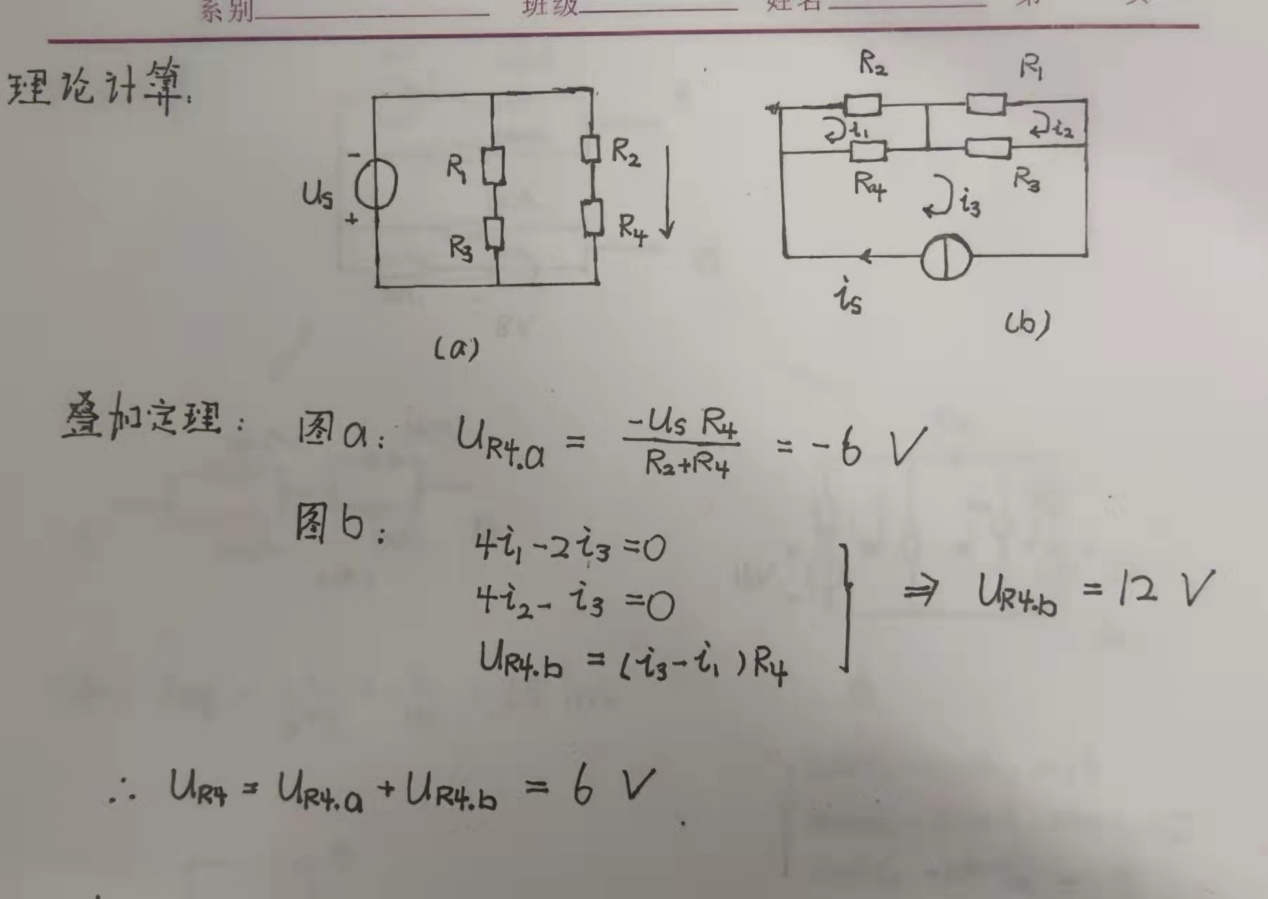 系别 班级 姓名
理论计算:
Us - + R1 R3 R2 R4
(a)
R2 R1
i1 i2
R4 R3
i3
is
(b)
叠加定理: 图a: UR4.a = -Us R4 / R2+R4 = -6 V
图b: 4i1-2i3=0
4i2- i3=0
UR4.b = (i3-i1)R4
⇒ UR4.b = 12 V
∴ UR4 = UR4.a + UR4.b = 6 V